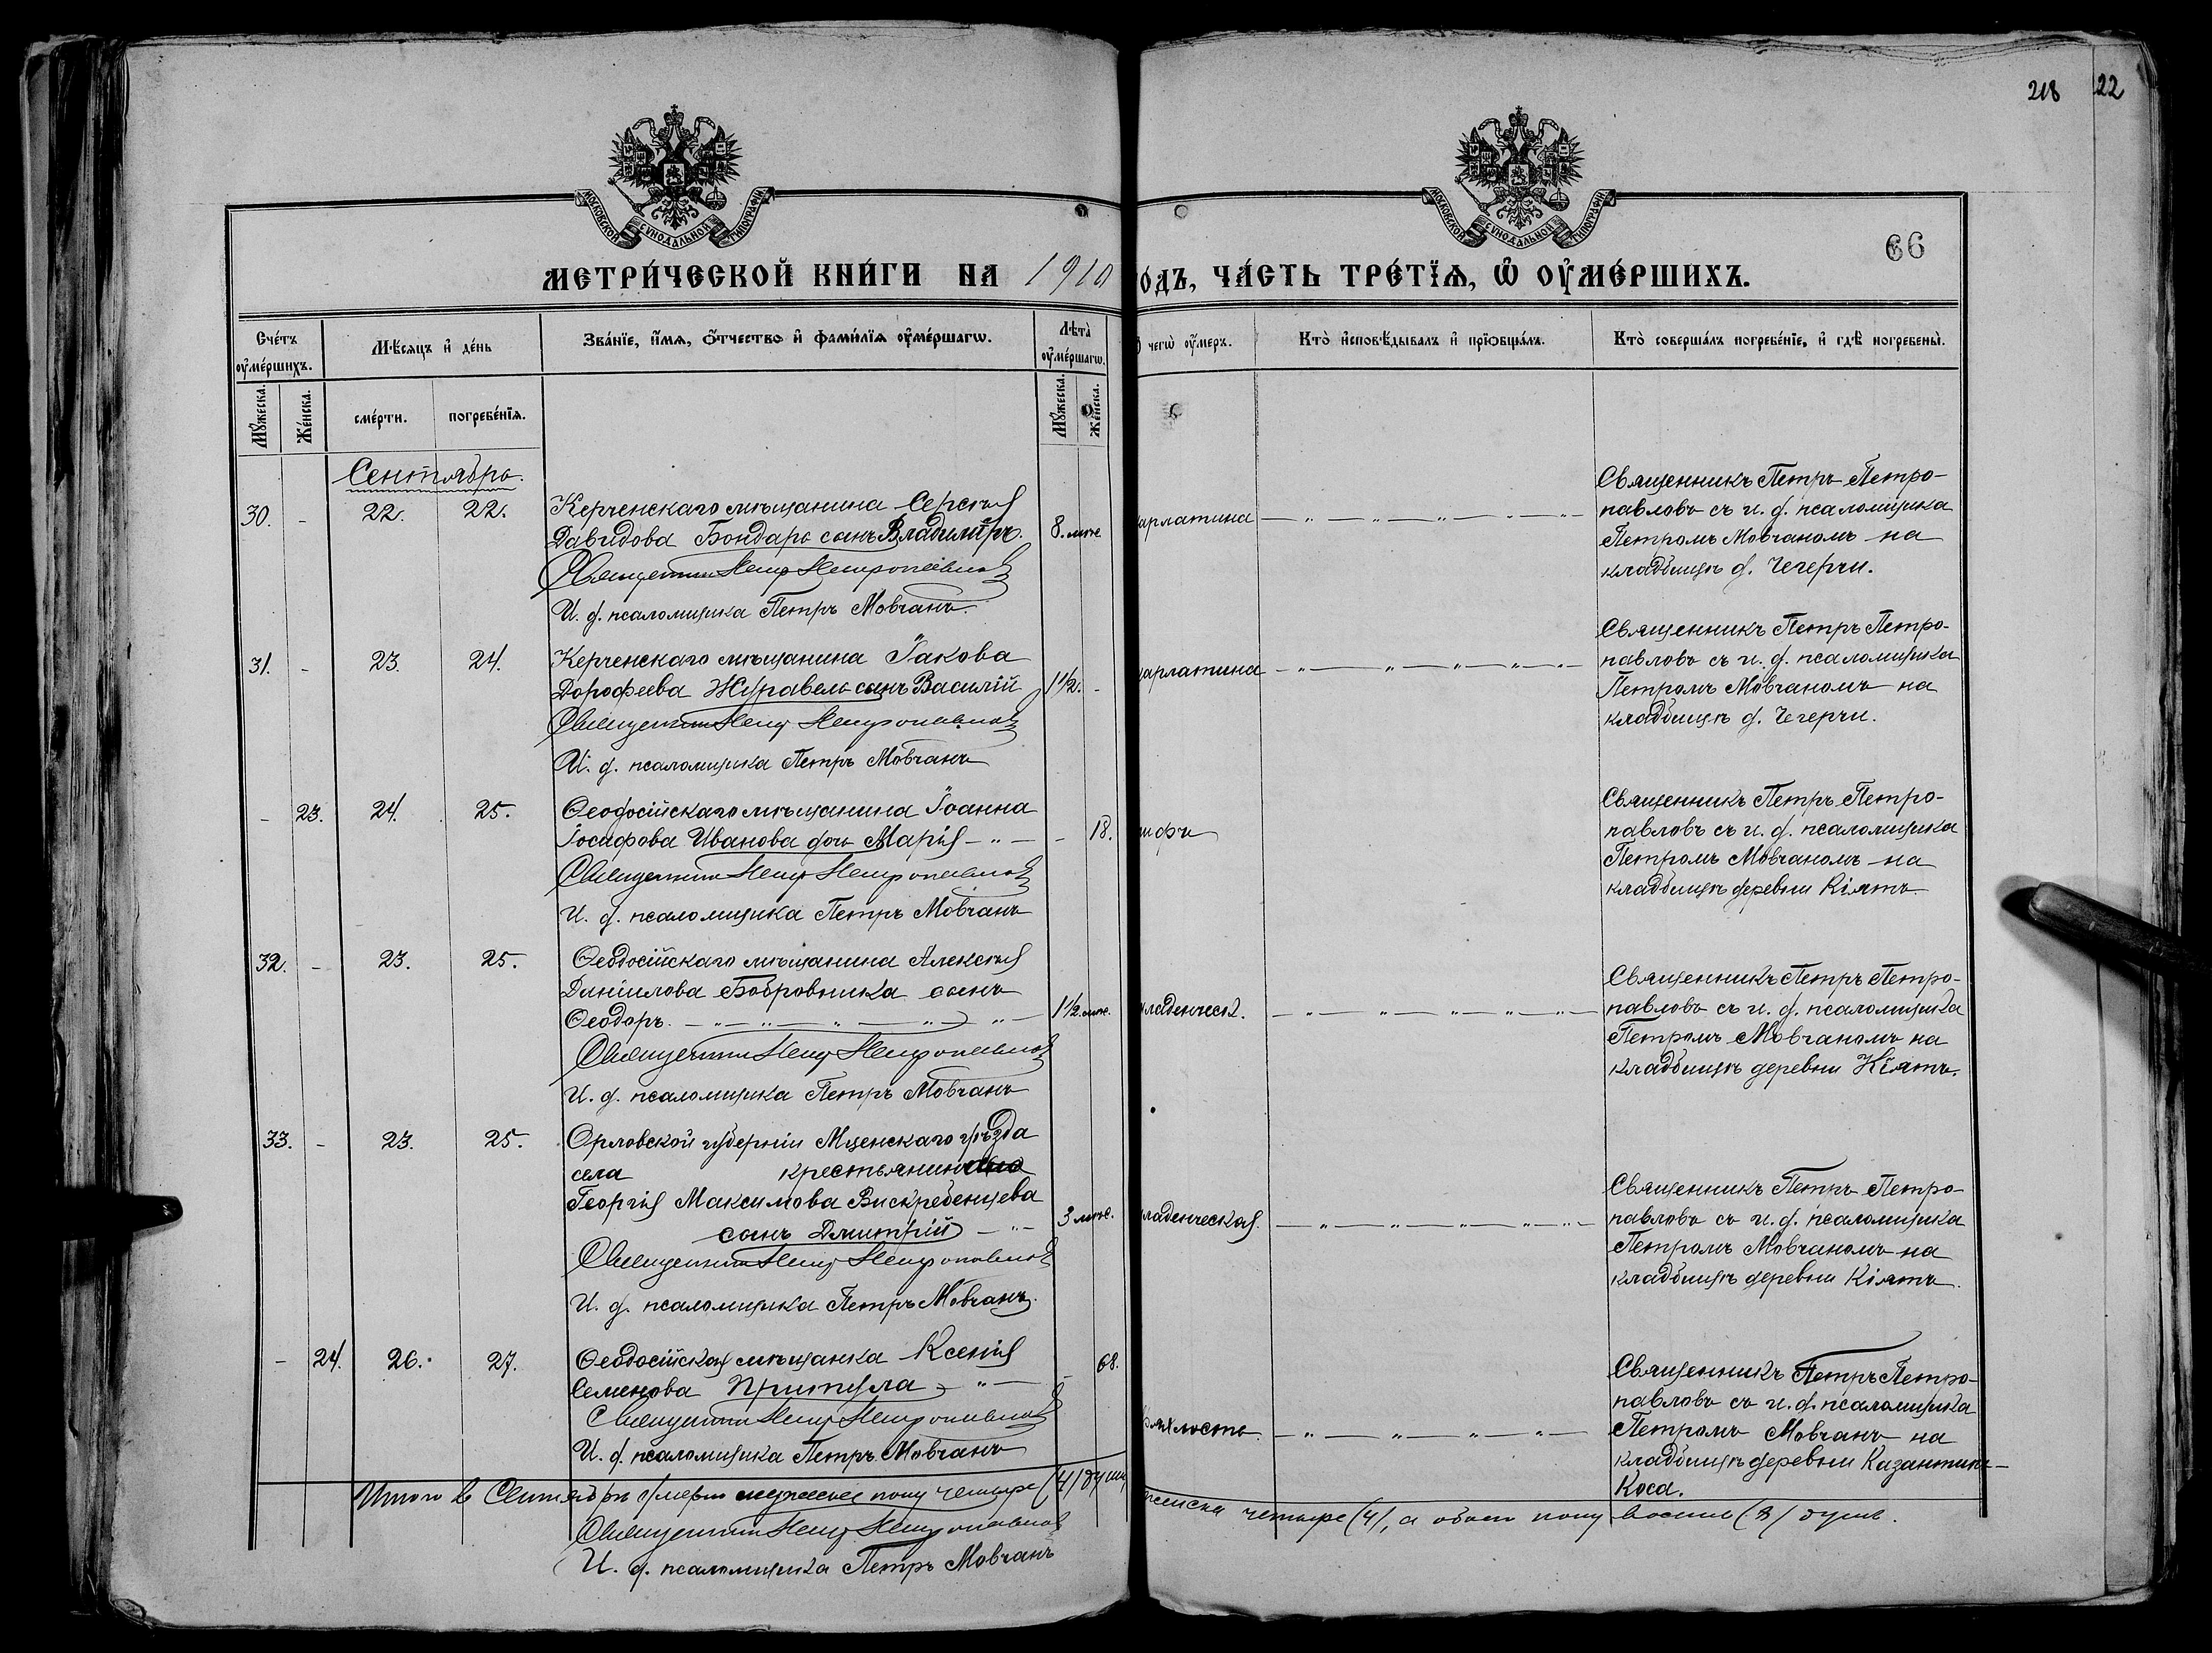 218 22
МОСКОВСКОЙ СѴНОДАЛЬНОЙ ТИПОГРАФІИ
МОСКОВСКОЙ СѴНОДАЛЬНОЙ ТИПОГРАФІИ
66
МЕТРИ́ЧЕСКОЙ КНИ́ГИ НА 1910
ОДЪ, ЧА́СТЬ ТРЕ́ТЇѦ, Ѡ҆ ОУ҆МЕ́РШИХЪ.
Сче́тъ оу҆ме́ршихъ.
Мꙋ́жеска. Же́нска.
Мѣ́сѧцъ и҆ де́нь
сме́рти. погребе́нїѧ.
Зва́нїе, и҆́мѧ, ѻ҆́тчество и҆ фами́лїѧ оу҆ме́ршагѡ.
Лѣта̀ оу҆ме́ршагѡ.
Мꙋ́жеска. Же́нска.
чегѡ̀ оу҆́меръ.
Кто̀ и҆сповѣ́дывалъ и҆ прїѡбща́лъ.
Кто̀ соверша́лъ погребе́нїе, и҆ гдѣ̀ погребены̀.
Сентябрь.
30. - 22. 22. Керченскаго мѣщанина Сергѣя
Давидова Бондарь сынъ Владиміръ. 8. мѣс.
Священникъ Петръ Петропавловъ
И. д. псаломщика Петръ Мовчанъ.
арлатина
Священникъ Петръ Петро-
павловъ съ и. д. псаломщика
Петромъ Мовчаномъ на
кладбищѣ д. Чегерчи.
31. - 23. 24. Керченскаго мѣщанина Іакова
Дорофеева Журавель сынъ Василій 1½. -
Священникъ Петръ Петропавловъ
И. д. псаломщика Петръ Мовчанъ
арлатина
Священникъ Петръ Петро-
павловъ съ и. д. псаломщика
Петромъ Мовчаномъ на
кладбищѣ д. Чегерчи.
- 23. 24. 25. Ѳеодосійскаго мѣщанина Іоанна
Іосифова Иванова дочь Марія - 18.
Священникъ Петръ Петропавловъ
И. д. псаломщика Петръ Мовчанъ
ифъ
Священникъ Петръ Петро-
павловъ съ и. д. псаломщика
Петромъ Мовчаномъ на
кладбищѣ деревни Кіятъ
32. - 23. 25. Ѳеодосійскаго мѣщанина Алексѣя
Даніилова Бобровника сынъ
Ѳеодоръ. 1½ мѣс.
Священникъ Петръ Петропавловъ
И. д. псаломщика Петръ Мовчанъ
ладенческ.
Священникъ Петръ Петро-
павловъ съ и. д. псаломщика
Петромъ Мовчаномъ на
кладбищѣ деревни Кіятъ.
33. - 23. 25. Орловской губерніи Мценскаго уѣзда
села крестьянин
Георгія Максимова Вискребенцева
сынъ Дмитрій 3 мѣс.
Священникъ Петръ Петропавловъ
И. д. псаломщика Петръ Мовчанъ.
ладенческая.
Священникъ Петръ Петро-
павловъ съ и. д. псаломщика
Петромъ Мовчаномъ на
кладбищѣ деревни Кіятъ.
- 24. 26. 27. Ѳеодосійская мѣщанка Ксенія
Семенова Притула 68.
Священникъ Петръ Петропавловъ
И. д. псаломщика Петръ Мовчанъ
яхлость.
Священникъ Петръ Петро-
павловъ съ и. д. псаломщика
Петромъ Мовчанъ на
кладбищѣ деревни Казантипъ-
Коса.
Итого въ Сентябрѣ умерло мужеска полу четыре (4) души,
женска четыре (4), а обоего полу восемь (8) душъ.
Священникъ Петръ Петропавловъ
И. д. псаломщика Петръ Мовчанъ